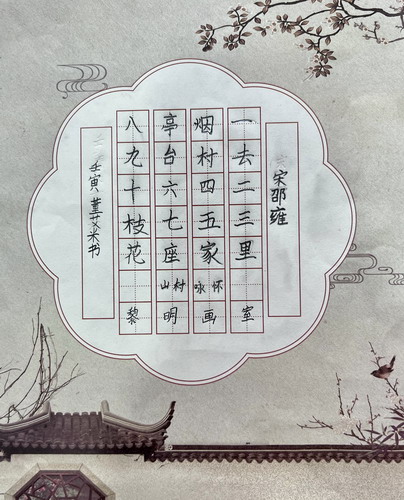 宋邵雍
一去二三里
烟村四五家
亭台六七座
八九十枝花
山村咏怀
黎明画室
壬寅 董艾米书